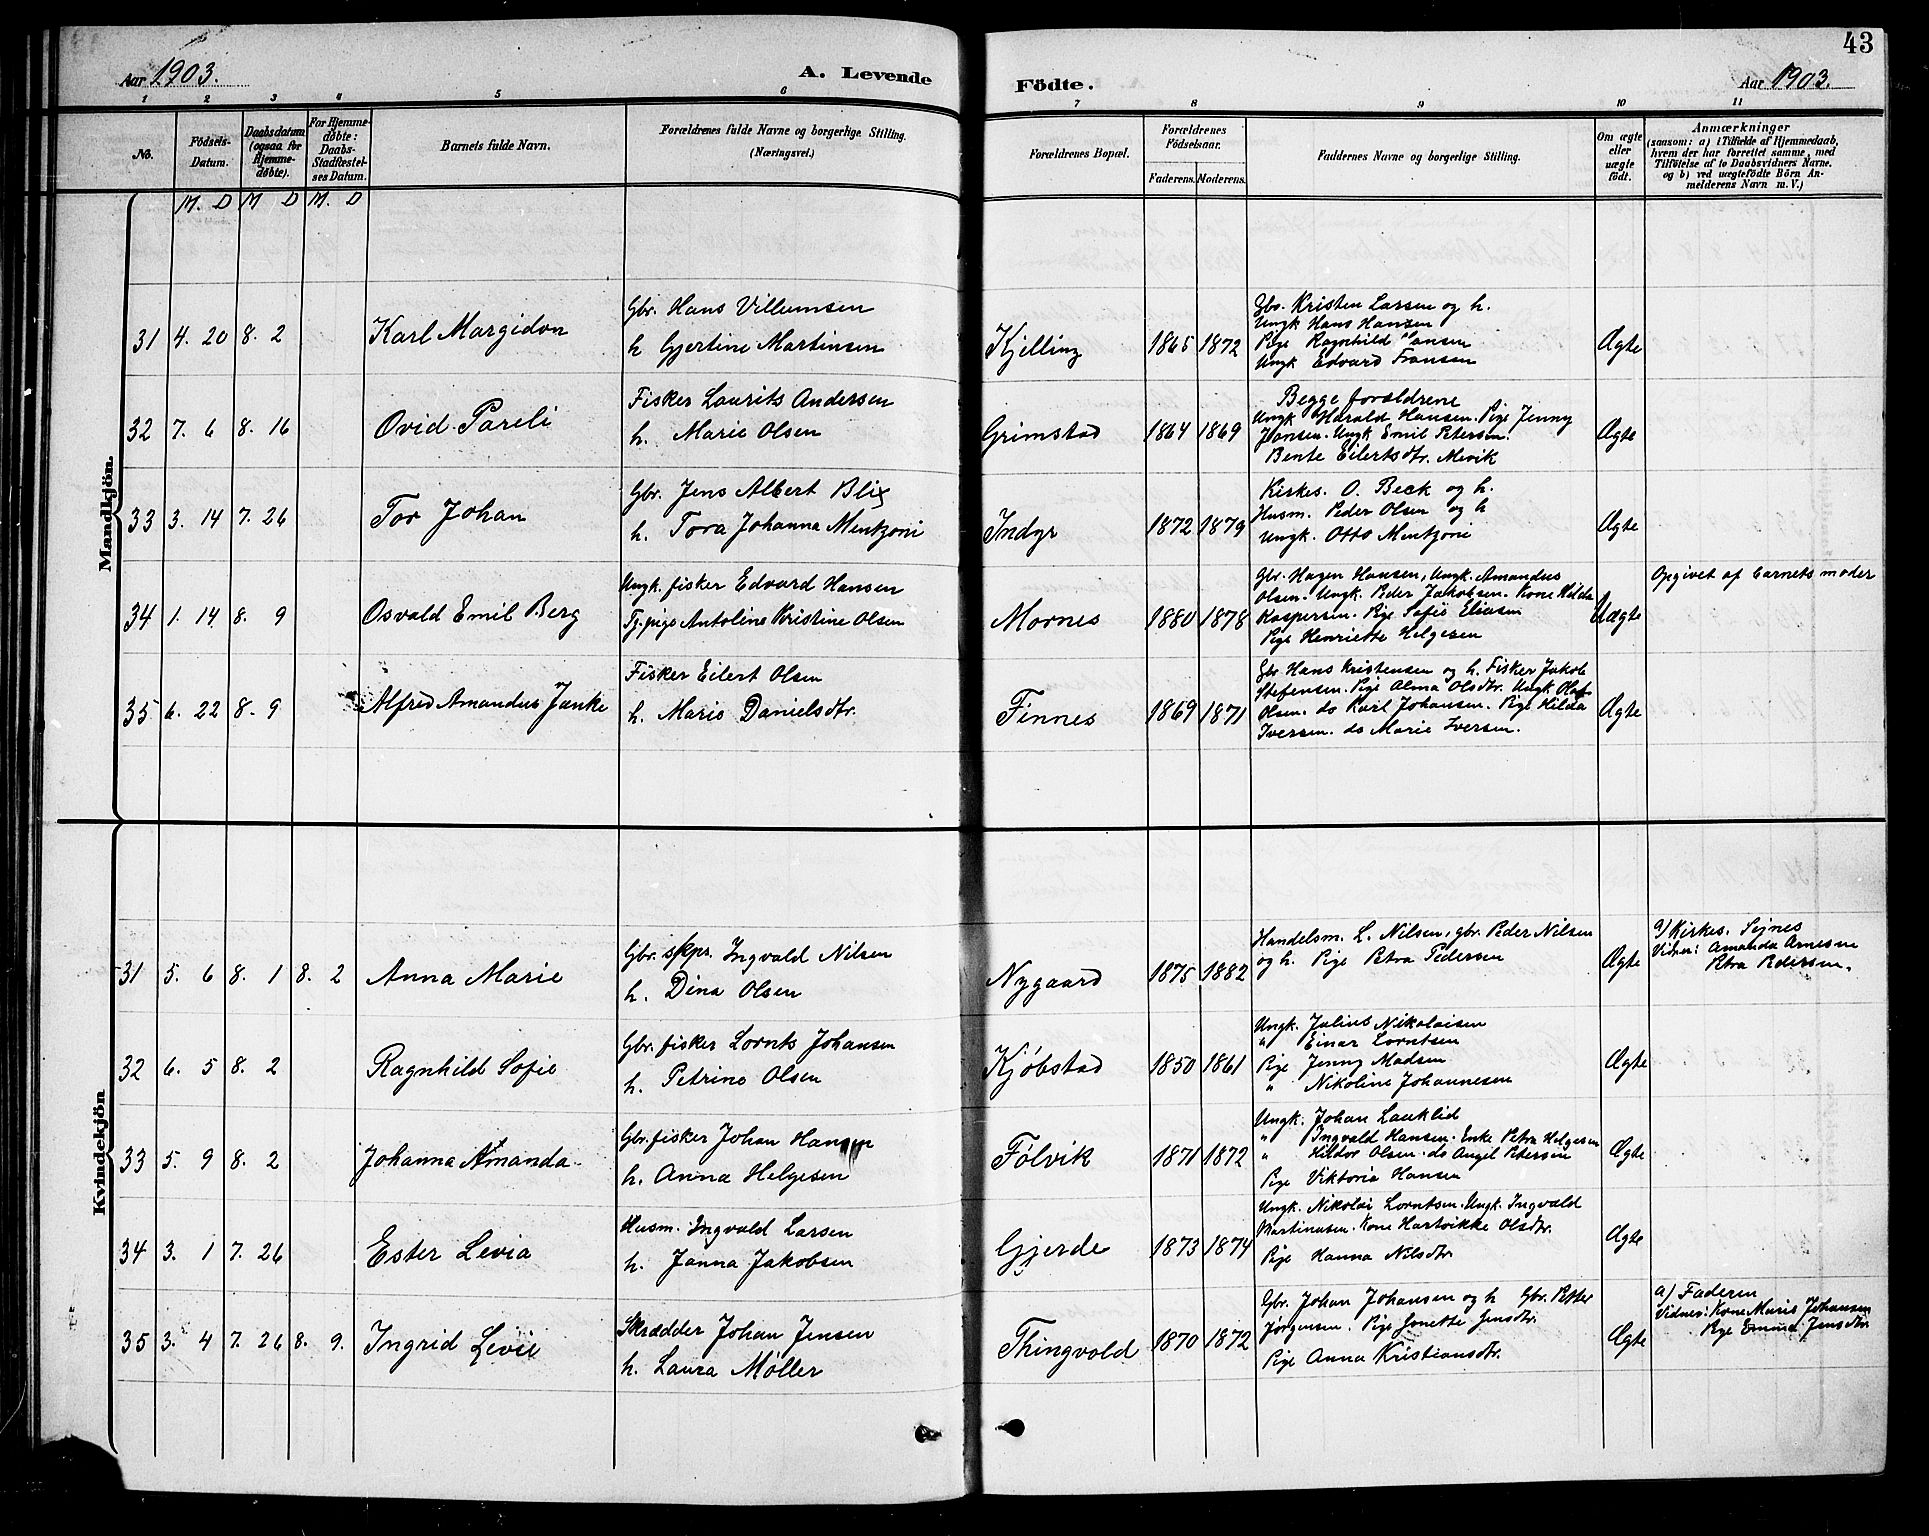 43
Aar 1903.
A. Levende
Födte.
Aar 1903.
1 2 3 4 5 6 7 8 9 10 11
No.
Födsels-
Datum.
Daabsdatum
(ogsaa for
Hjemme-
døbte).
For Hjemme-
døbte:
Daabs-
Stadfæstel-
ses Datum.
Barnets fulde Navn.
Forældrenes fulde Navne og borgerlige Stilling.
(Næringsvei.)
Forældrenes Bopæl.
Forældrenes
Födselsaar.
Faderens. Moderens.
Faddernes Navne og borgerlige Stilling.
Om ægte
eller
uægte
födt.
Anmærkninger
(saasom: a) i Tilfælde af Hjemmedaab,
hvem der har forrettet samme, med
Tilföielse af to Daabsvidners Navne.
og b) ved uægtefödte Börn An-
melderens Navn m.V.)
M. D M. D M. D
Mandkjön.
31 4. 20 8. 2
Karl Margidon
Gbr. Hans Villumsen
h Gjertine Martinsen
Kjelling
1865 1872
Gbr. Kristen Larsen og h.
Ungk Hans Hansen
Pige Ragnhild Hansen
Ungk Edvard Fransen
Ægte
32 7. 6 8. 16
Ovid Pareli
Fisker Laurits Andersen
h. Marie Olsen
Grimstad
1864 1869
Begge forældrene
Ungk Harald Hansen. Pige Jenny
Jansen. Ungk Emil Petersen.
Bente Eilertsdtr. Mevik
Ægte
33 3. 14 7. 26
Tor Johan
Gbr. Jens Albert Blix
h. Tora Johanna Mentzoni
Indyr
1872 1879
Kirkes. O. Beck og h.
Husm. Peder Olsen og h
Ungk. Otto Mentzoni
Ægte
34 1. 14 8. 9
Osvald Emil Berg
Ungk. fisker Edvard Hansen
Tj.pige Antoline Kristine Olsen
Mornes
1880 1878
Gbr. Hagen Hansen, Ungk. Amandus
Olsen. Ungk. Peder Jakobsen. Kone Hilda
Kaspersen. Pige Sofie Eliasen
Pige Henriette Helgesen
Uægte
Opgivet af barnets moder
35 6. 22 8. 9
Alfred Amandus Janke
Fisker Eilert Olsen
h. Maris Danielsdtr.
Finnes
1869 1871
Gbr Hans Kristensen og h. Fisker Jakob
Stefensen. Pige Alma Olsdtr. Ungk Olaf
Olsen. do Karl Johansen. Pige Hilda
Iversen. do Marie Iversen.
Ægte
Kvindekjön
31 5. 6 8. 1 8. 2
Anna Marie
Gbr. skpr. Ingvald Nilsen
h. Dina Olsen
Nygaard
1875 1882
Handelsm. L. Nilsen, gbr. Peder Nilsen
og h. Pige Petra Pedersen
Ægte
a) Kirkes. Signes
Vidner: Amanda Arnesen
Petra Pedersen.
32 6. 5 8. 2
Ragnhild Sofie
Gbr. fisker Lornts Johansen
h. Petrine Olsen
Kjøbstad
1850 1861
Ungk. Julius Nikolaisen
" Einar Lorntsen
Pige Jenny Madsen
" Nikoline Johannesen
Ægte
33 5. 9 8. 2
Johanna Amanda
Gbr. fisker Johan Hansen
h. Anna Helgesen
Følvik
1871 1872
Ungk. Johan Lauklid
" Ingvald Hansen. Enke Petra Helgesen
" Hildor Olsen. do Angel Petersen
Pige Viktoria Hansen
Ægte
34 3. 1 7. 26
Ester Levia
Husm. Ingvald Larsen
h. Janna Jakobsen
Gjerde
1873 1874
Ungk. Nikolai Lorntsen. Ungk. Ingvald
Martinusen. Kone Hartvikke Olsdtr.
Pige Hanna Nilsdtr.
Ægte
35 3. 4 7. 26 8. 9.
Ingrid Levie
Skrædder Johan Jensen
h. Laura Møller
Thingvold
1870 1872
Gbr. Johan Johansen og h Gbr. Petter
Jørgensen. Pige Jonette Jensdtr.
Pige Anna Kristiansdtr.
Ægte
a) Faderen
Vidner: Kone Maris Johansen
Pige Emma Jensdtr.